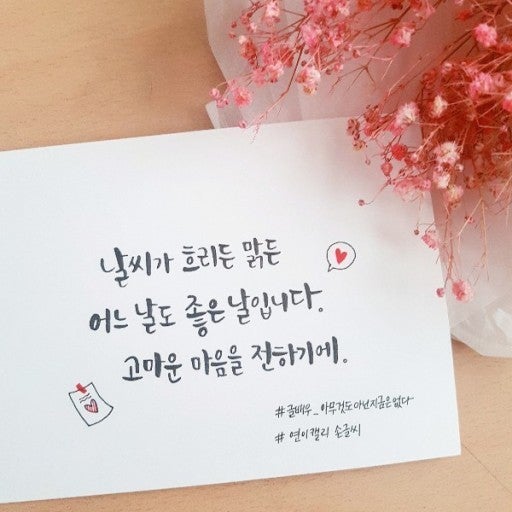 날씨가 흐리든 맑든
어느 날도 좋은 날입니다.
고마운 마음을 전하기에.
#글배우_아무것도아닌지금은없다
#연이캘리 손글씨